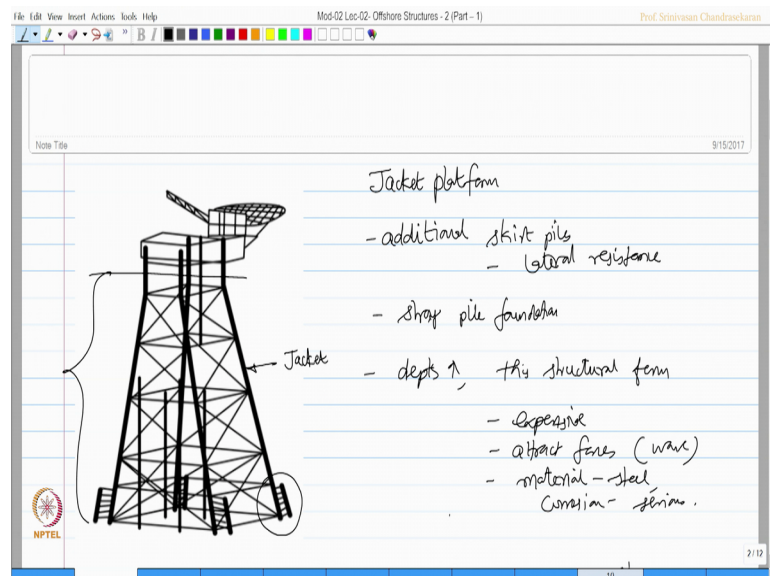 File Edit View Insert Actions Tools Help
Mod-02 Lec-02- Offshore Structures - 2 (Part – 1)
Prof. Srinivasan Chandrasekaran
B I
Note Title
9/15/2017
Jacket platform
- additional skirt piles
- lateral resistance
- strong pile foundation
Jacket
- depth ↑, this structural form
- expensive
- attract forces (wave)
- material - steel,
corrosion - serious.
NPTEL
2 / 12